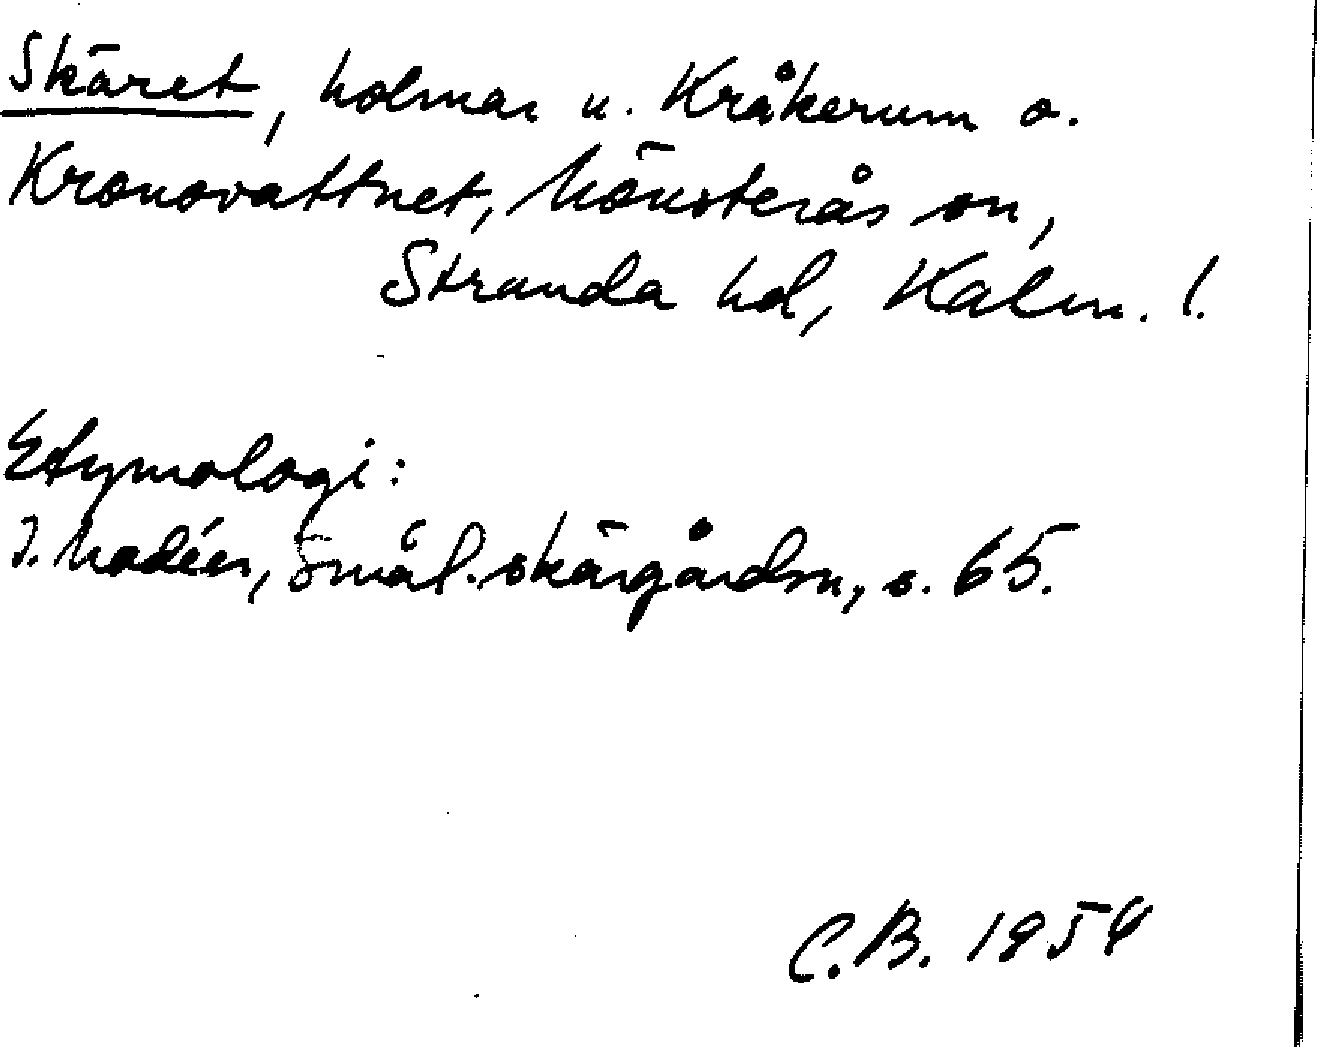 Skäret, holmar u. Kråkerum o.
Kronovattnet, Mönsterås sn,
Stranda hd, Kalm. l.
Etymologi:
I. Modéer, Smål. skärgårdsn., s. 65.
C.B. 1954